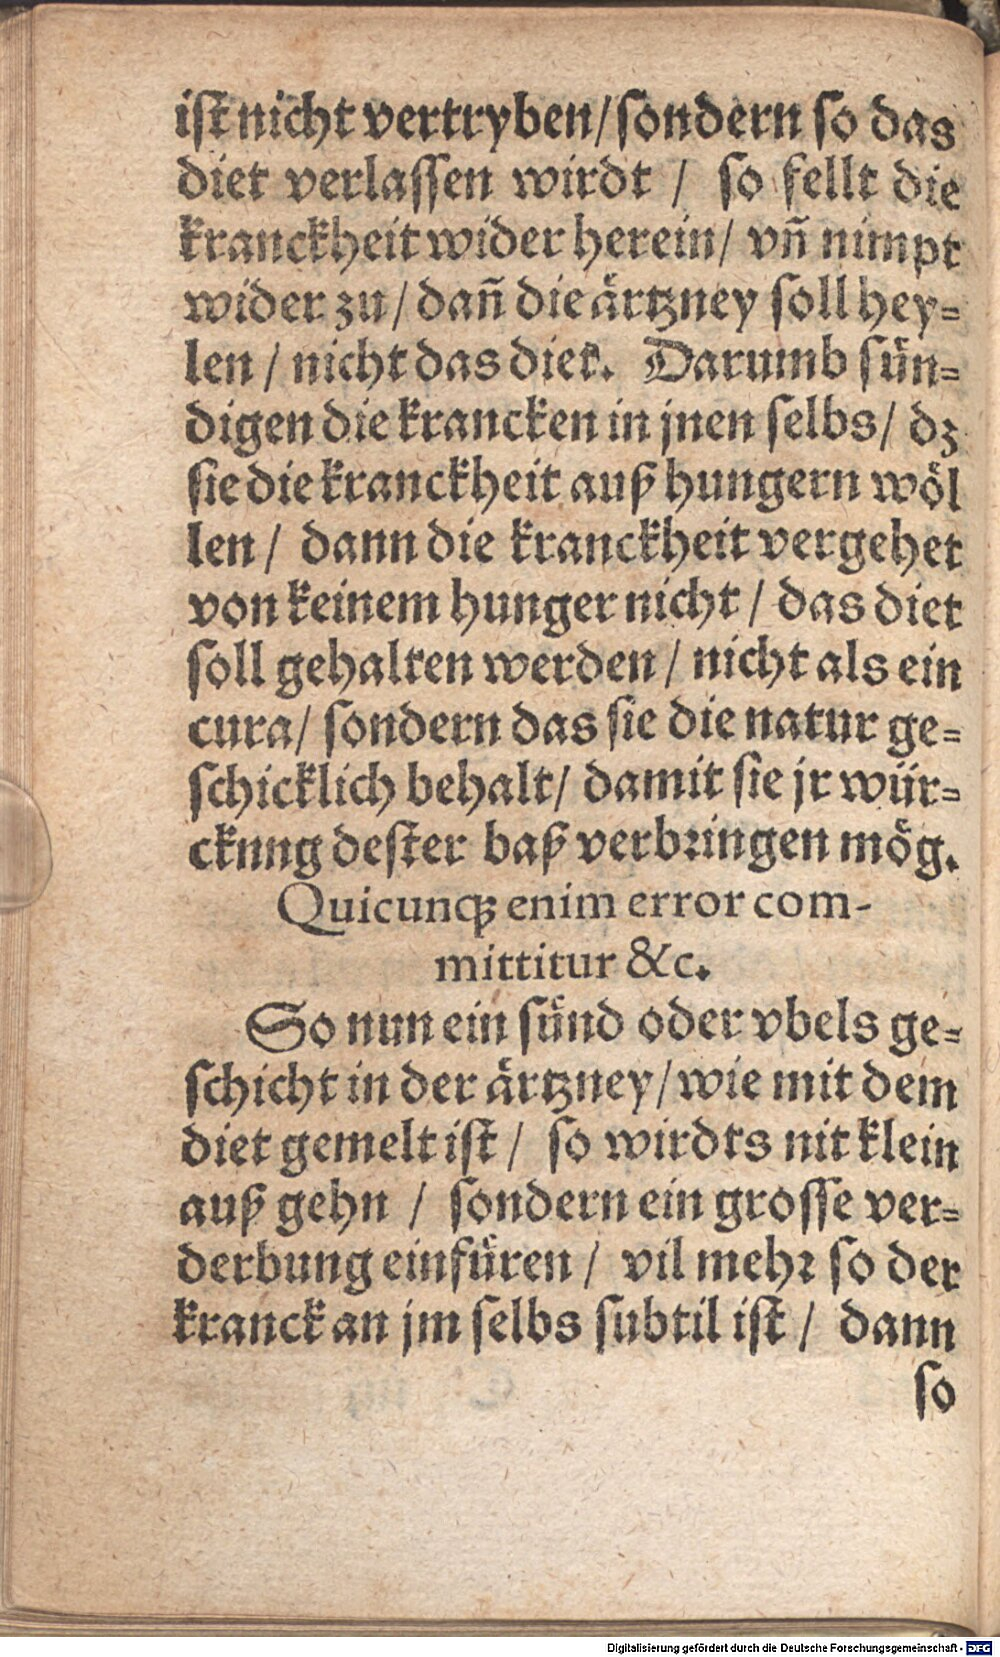 ist nicht vertryben/sondern so das
diet verlassen wirdt / so fellt die
kranckheit wider herein/ vñ nimpt
wider zu/dañ die ärtzney soll hey=
len / nicht das diet. Darumb sün=
digen die krancken in jnen selbs/ dz
sie die kranckheit auß hungern wöl
len / dann die kranckheit vergehet
von keinem hunger nicht / das diet
soll gehalten werden / nicht als ein
cura/ sondern das sie die natur ge=
schicklich behalt/ damit sie jr wür=
cknng dester baß verbringen mög.
Quicunqꝫ enim error com-
mittitur &c.
So nun ein sünd oder vbels ge=
schicht in der ärtzney/wie mit dem
diet gemelt ist / so wirdts nit klein
auß gehn / sondern ein grosse ver=
derbung einfüren / vil mehr so der
kranck an jm selbs subtil ist / dann
so
Digitalisierung gefördert durch die Deutsche Forschungsgemeinschaft - DFG